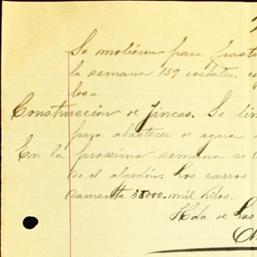 Se molieron para
la semana 159 costales.
los
Construccion de fincas. Se
para abastecer de agua
En la proxima semana se
de el algodon. Los carros
damente 35000. mil kilos.
Hda de Las